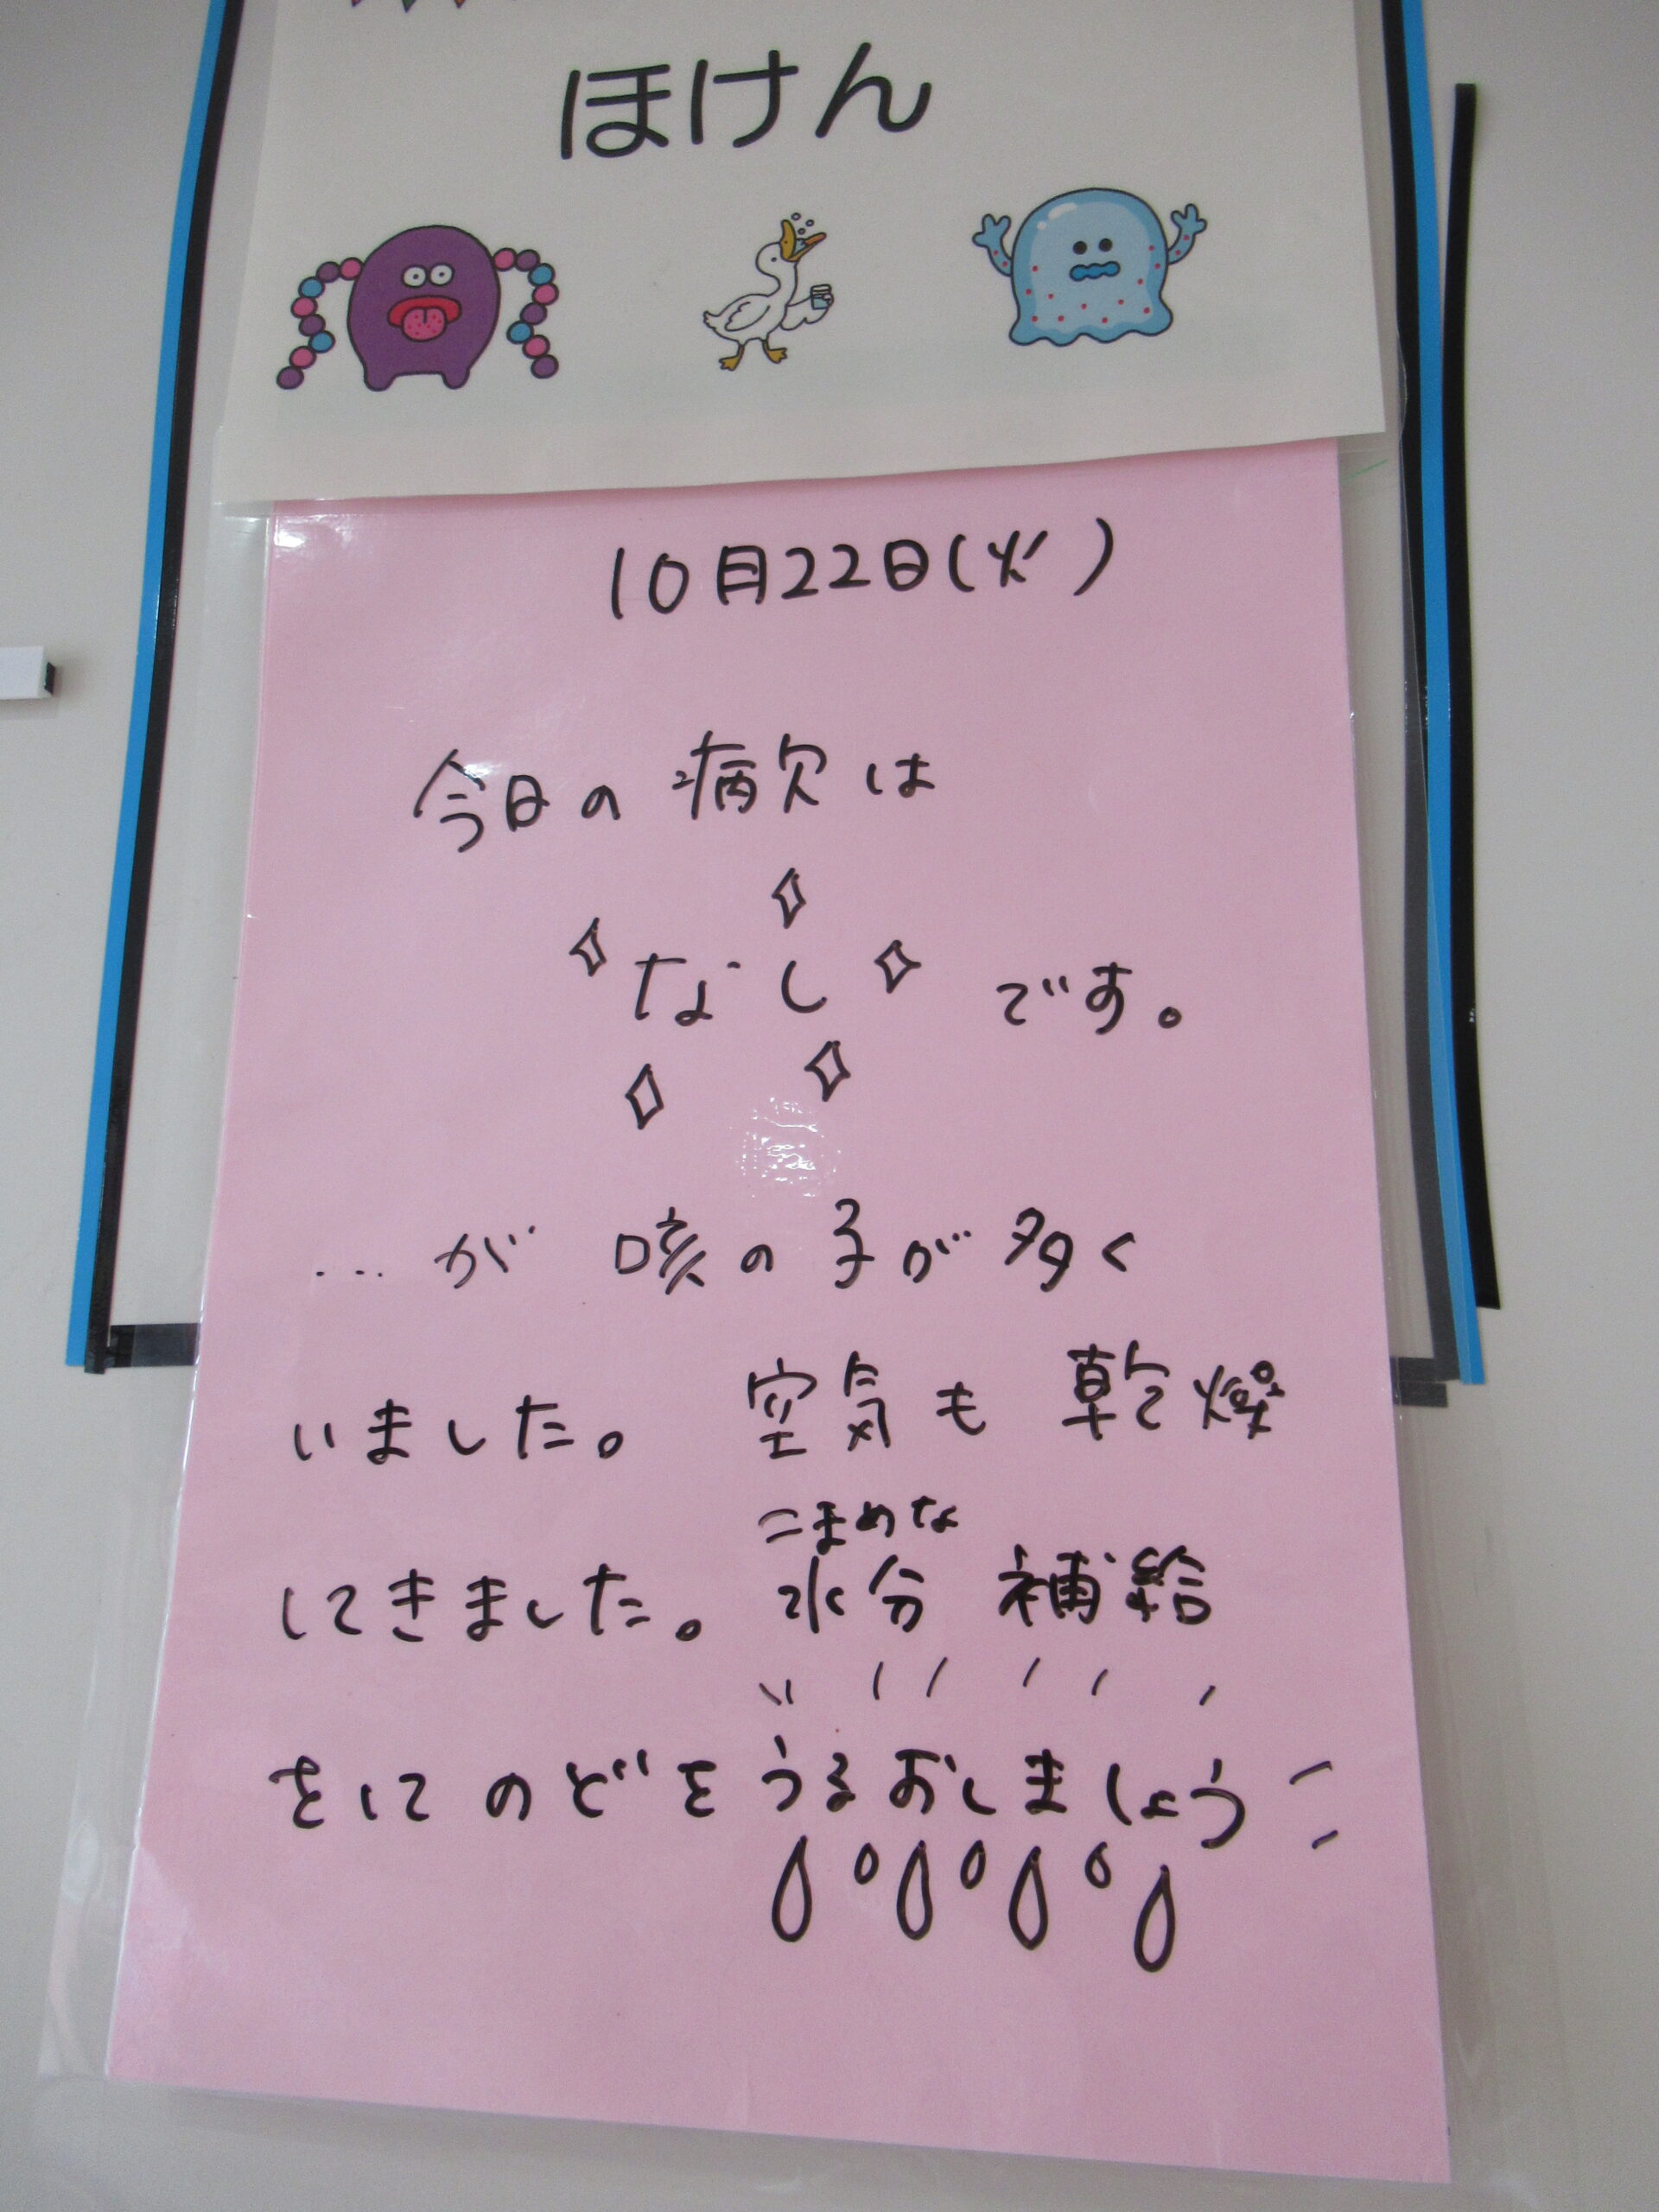 ほけん
10月22日(火)
今日の病欠は
なし です。
…が 咳の子が多く
いました。 空気も乾燥
こまめな
してきました。水分補給
をしてのどをうるおしましょう